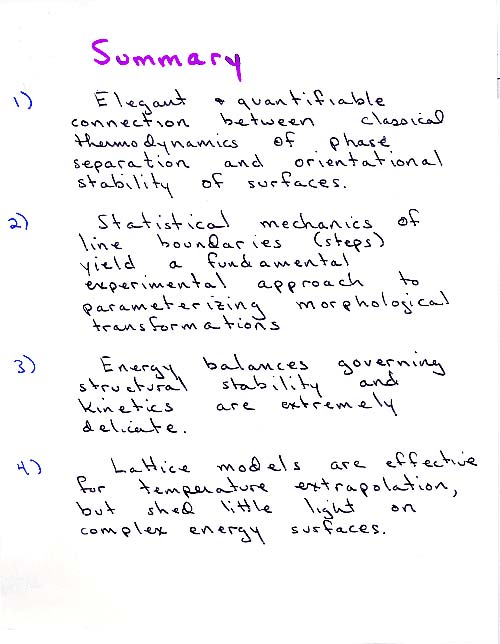 Summary
1) Elegant & quantifiable
connection between classical
thermodynamics of phase
separation and orientational
stability of surfaces.
2) Statistical mechanics of
line boundaries (steps)
yield a fundamental
experimental approach to
parameterizing morphological
transformations
3) Energy balances governing
structural stability and
kinetics are extremely
delicate.
4) Lattice models are effective
for temperature extrapolation,
but shed little light on
complex energy surfaces.